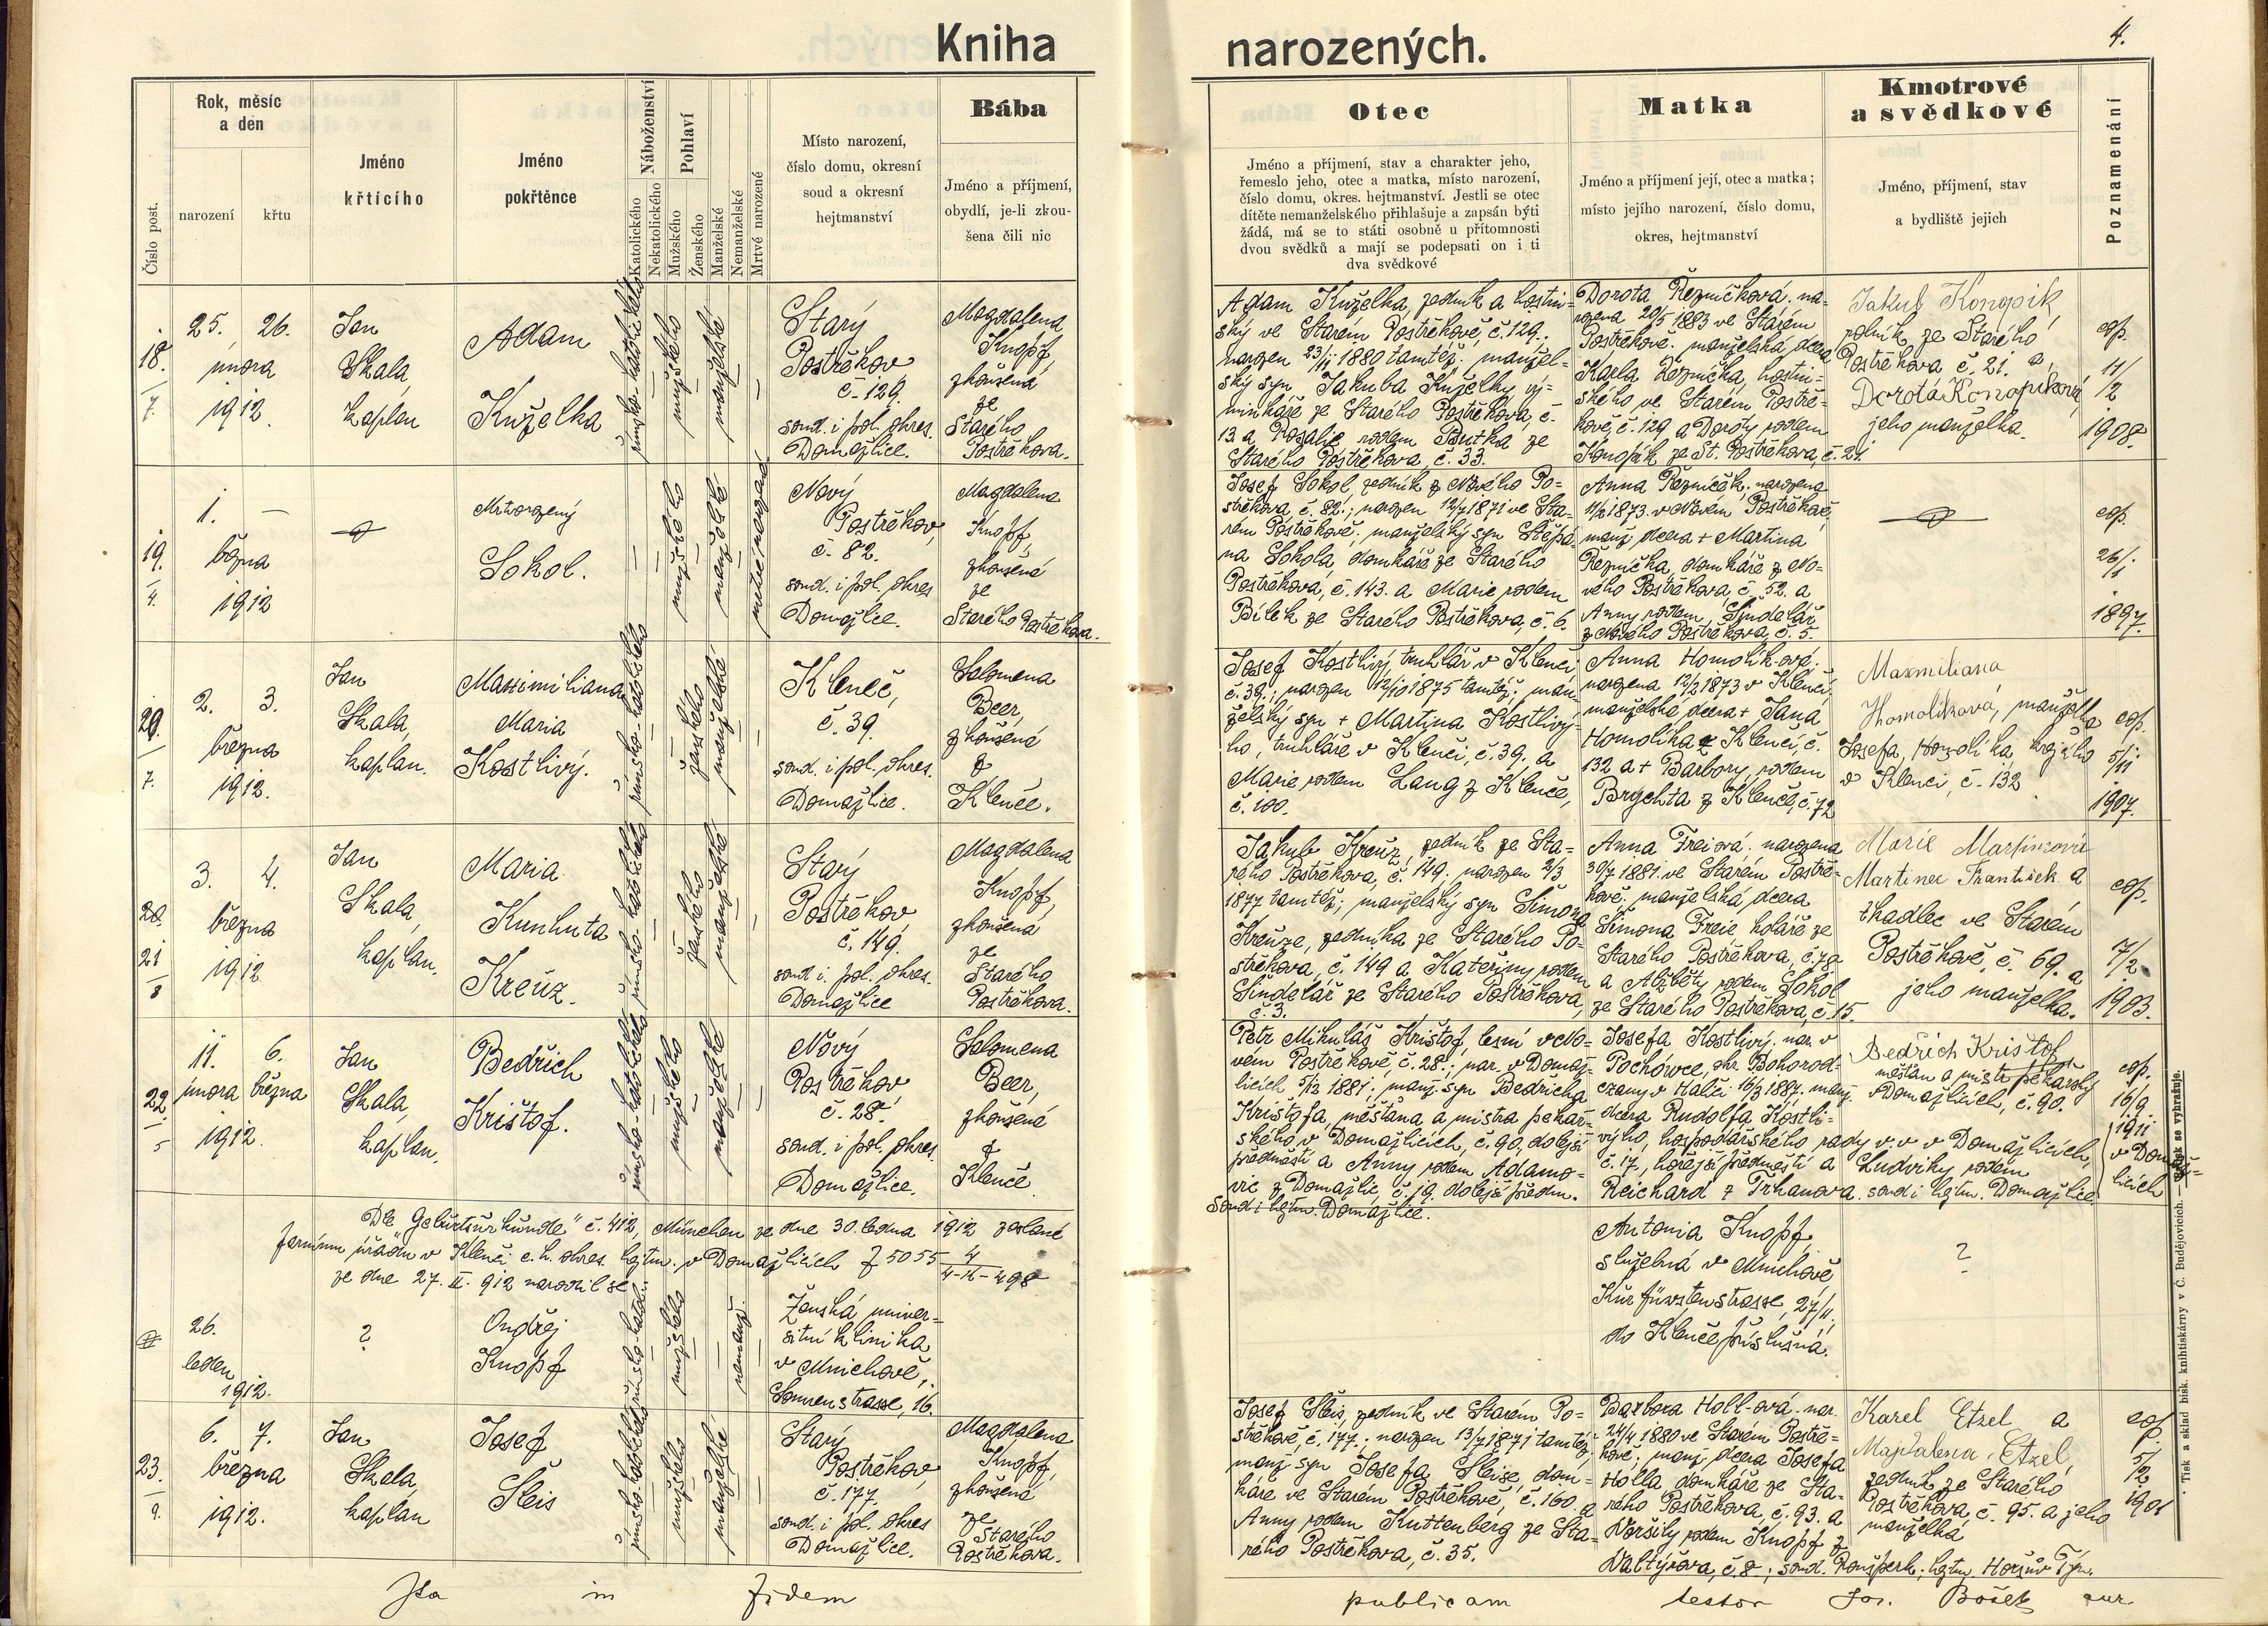 Kniha narozených.
4.
Číslo post.
Rok, měsíc
a den
narození
křtu
Jméno
křtícího
Jméno
pokřtěnce
Náboženství
Katolického
Nekatolického
Pohlaví
Mužského
Ženského
Manželské
Nemanželské
Mrtvé narozené
Místo narození,
číslo domu, okresní
soud a okresní
hejtmanství
Bába
Jméno a příjmení,
obydlí, je-li zkou-
šena čili nic
Otec
Jméno a příjmení, stav a charakter jeho,
řemeslo jeho, otec a matka, místo narození,
číslo domu, okres. hejtmanství. Jestli se otec
dítěte nemanželského přihlašuje a zapsán býti
žádá, má se to státi osobně u přítomnosti
dvou svědků a mají se podepsati on i ti
dva svědkové
Matka
Jméno a příjmení její, otec a matka;
místo jejího narození, číslo domu,
okres, hejtmanství
Kmotrové
a svědkové
Jméno, příjmení, stav
a bydliště jejich
Poznamenání
18.
7.
25. 26.
února
1912.
Jan
Skala,
kaplan
Adam
Kuželka
římsko-katolického
mužského
manželské
Starý
Postřekov
č. 129.
soud. i pol. okres.
Domažlice.
Magdalena
Knopf,
zkoušená
ze
Starého
Postřekova.
Adam Kuželka, zedník a hostin-
ský ve Starém Postřekově, č. 129.;
narozen 23/11 1880 tamtéž; manžel-
ský syn Jakuba Kuželky vý-
minkáře ze Starého Postřekova, č.
13 a Rosalie rodem Butka ze
Starého Postřekova, č. 33.
Dorota Řezníčková. na-
rozena 20/5 1883 ve Starém
Postřekově. manželská dcera
Karla Řezníčka, hostin-
ského ve Starém Postře-
kově, č. 129 a Doroty rodem
Konopík ze St. Postřekova, č. 21.
Jakub Konopík,
rolník ze Starého
Postřekova č. 21. a
Dorota Konopíková,
jeho manželka.
cop.
11/2
1908.
19.
4.
1. —
března
1912
Mrtvorozený
Sokol.
mužského
manželské
mrtvě narozené
Nový
Postřekov,
č. 82.
soud. i pol. okres
Domažlice.
Magdalena
Knopf,
zkoušená
ze
Starého Postřekova.
Josef Sokol, zedník z Nového Po-
střekova, č. 82.; narozen 12/7 1871 ve Sta-
rém Postřekově; manželský syn Štěpá-
na Sokola, domkáře ze Starého
Postřekova, č. 143. a Marie rodem
Bílek ze Starého Postřekova, č. 6.
Anna Řezníček. narozena
11/2 1873. v Novém Postřekově;
manž. dcera + Martina
Řezníčka, domkáře z No-
vého Postřekova, č. 52. a
Anny rodem Šindelář
z Nového Postřekova, č. 5.
cop.
26/1
1897.
20.
7.
2. 3.
března
1912.
Jan
Skala,
kaplan.
Maximiliana
Maria
Kostlivý.
římsko-katolického
ženského
manželské
Kleneč,
č. 39.
soud. i pol. okres.
Domažlice.
Salomena
Beer,
zkoušená
z
Klenče.
Josef Kostlivý, truhlář v Klenči,
č. 39.; narozen 12/10 1875 tamtéž; man-
želský syn + Martina Kostlivý-
ho, truhláře v Klenči, č. 39., a
Marie rodem Lang z Klenče,
č. 100.
Anna Homolík-ová.
narozena 12/2 1873 v Klenči;
manželská dcera + Jana
Homolíka z Klenčí, č.
132 a + Barbory, rodem
Brychta z Klenče, č. 72
Maxmiliana
Homolíková, manželka
Josefa Homolíka, krejčího
v Klenči, č. 132
cop.
5/11
1907.
20.
21
8
3. 4.
března
1912
Jan
Skala,
kaplan.
Maria
Kunhuta
Kreuz.
římsko-katolického
ženského
manželské
Starý
Postřekov,
č. 149.
soud. i. pol. okres.
Domažlice
Magdalena
Knopf,
zkoušená
ze
Starého
Postřekova.
Jakub Kreuz, zedník ze Sta-
rého Postřekova, č. 149. narozen 2/3
1877 tamtéž; manželský syn Šimona
Kreuze, zedníka ze Starého Po-
střekova, č. 149 a Kateřiny rodem
Šindelář ze Starého Postřekova,
č. 3.
Anna Freiová. narozena
30/7 1881. ve Starém Postře-
kově; manželská dcera
Šimona Freie koláře ze
Starého Postřekova, č. 70.
a Alžběty rodem Sokol
ze Starého Postřekova, č. 15.
Marie Martincová
Martinec František a
tkadlec ve Starém
Postřekově, č. 69. a
jeho manželka.
cop.
7/2
1903.
22
5
11. 6.
února března
1912.
Jan
Skala,
kaplan.
Bedřich
Krištof.
římsko-katolického
mužského
manželské
Nový
Postřekov
č. 28.
soud. i pol. okres.
Domažlice.
Salomena
Beer,
zkoušená
z
Klenče
Petr Mikuláš Krištof, lesní v No-
vém Postřekově, č. 28.; nar. v Domaž-
licích, 5/2 1881.; manž. syn Bedřicha
Krištofa, měšťana a mistra pekař-
ského v Domažlicích, č. 90, dolejší
předměstí a Anny rodem Adamo-
vic z Domažlic, č. 19. dolejší předm.
Soud i hejtm. Domažlice.
Josefa Kostlivý. nar. v
Pochówce, okr. Bohorod-
czany v Haliči 16/3 1887. manž.
dcera Rudolfa Kostli-
výho, hospodářského rady v. v. v Domažlicích,
č. 17., hořejší předměstí a Ludviky rodem
Reichard z Trhanova. soud i hejtm. Domažlice
Bedřich Krištof
měšťan a mistr pekařský
v Domažlicích, č. 90.
cop.
16/9.
1911
v Domaž-
licích
Dle „Geburtsurkunde" č. 412, München ze dne 30. ledna 1912 zaslané
farnímu úřadu v Klenči c. k. okres. hejtm. v Domažlicích Z 5055
ze dne 27. II. 912 narodil se
26.
leden
1912.
?
Ondřej
Knopf
římsko-katol.
mužského
nemanž.
Ženská univer-
sitní klinika
v Mnichově,
Sonnenstrasse, 16.
Antonia Knopf,
služebná v Mnichově
Kurfürstenstrasse, 27/II.,
do Klenče příslušná.
?
23.
9.
6. 7.
března
1912.
Jan
Skala,
kaplan
Josef
Šleis
římsko-katolického
mužského
manželské
Starý
Postřekov,
č. 177.
soud. i pol. okres
Domažlice.
Magdalena
Knopf,
zkoušená
ze
Starého
Postřekova.
Josef Šleis, zedník ve Starém Po-
střekově, č. 177.; narozen 13/7 1871 tamtéž;
manž. syn Josefa Šleise, dom-
káře ve Starém Postřekově, č. 160. a
Anny rodem Kuttenberg ze Sta-
rého Postřekova, č. 35.
Barbora Holl-ová. nar.
24/4 1880 ve Starém Postře-
kově; manž. dcera Josefa
Holla, domkáře ze Sta-
rého Postřekova, č. 93. a
Voršily rodem Knopf z
Valtýřova, č. 8.; soud. Ronšperk; hejtm. Horšův Týn.
Karel Etzel a
Magdalena Etzel,
zedník ze Starého
Postřekova, č. 95. a jeho
manželka
cop.
5/2
1901
Ita in fidem publicam testor Jos. Bošek cur.
Tisk a sklad bisk. knihtiskárny v Č. Budějovicích. — se vyhražuje.